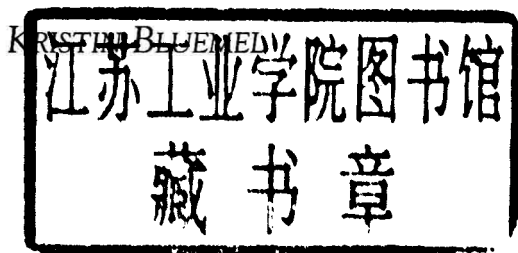 KRISTIN BLUEMEL
江苏工业学院图书馆
藏书章